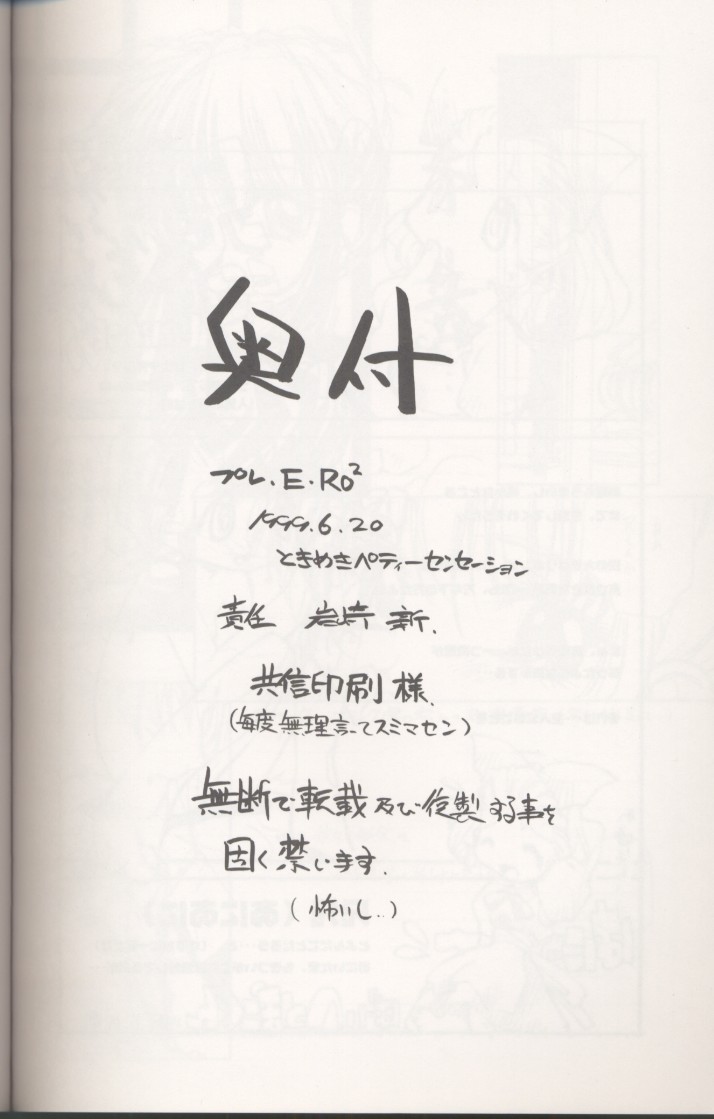 奥付
プレ.E.Ro²
1999.6.20
ときめきペティーセンセーション
責任 岩崎 新.
共信印刷様.
(毎度無理言ってスミマセン)
無断で転載及び複製する事を
固く禁じます.
(怖いし..)